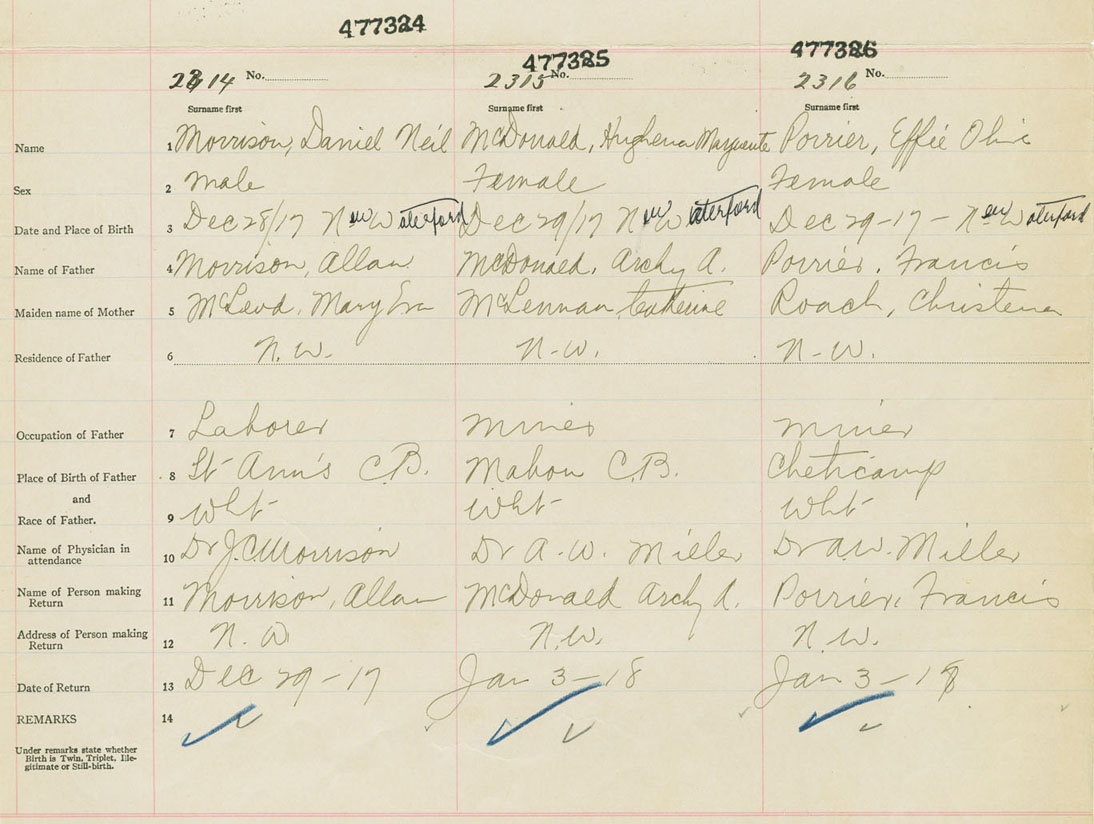 477324 477325 477326
2314 No. 2315 No. 2316 No.
Surname first Surname first Surname first
Name 1 Morrison, Daniel Neil McDonald, Hughena Marguerite Porrier, Effie Olive
Sex 2 Male Female Female
Date and Place of Birth 3 Dec 28/17 New Waterford Dec 29/17 New Waterford Dec 29-17 - New Waterford
Name of Father 4 Morrison, Allan McDonald, Archy A. Porrier, Francis
Maiden name of Mother 5 McLeod, Mary Eva McLennan, Catherine Roach, Christena
Residence of Father 6 N.W. N-W. N-W.
Occupation of Father 7 Laborer Miner Miner
Place of Birth of Father 8 St Ann's C.B. Mabou C.B. Cheticamp
and
Race of Father. 9 Wht Wht Wht
Name of Physician in
attendance 10 Dr J.C. Morrison Dr A.W. Miller Dr AW. Miller
Name of Person making
Return 11 Morrison, Allan McDonald Archy A. Porrier, Francis
Address of Person making
Return 12 N.W N.W. N.W.
Date of Return 13 Dec 29-17 Jan 3-18 Jan 3-18
REMARKS 14
Under remarks state whether
Birth is Twin, Triplet, Ille-
gitimate or Still-birth.